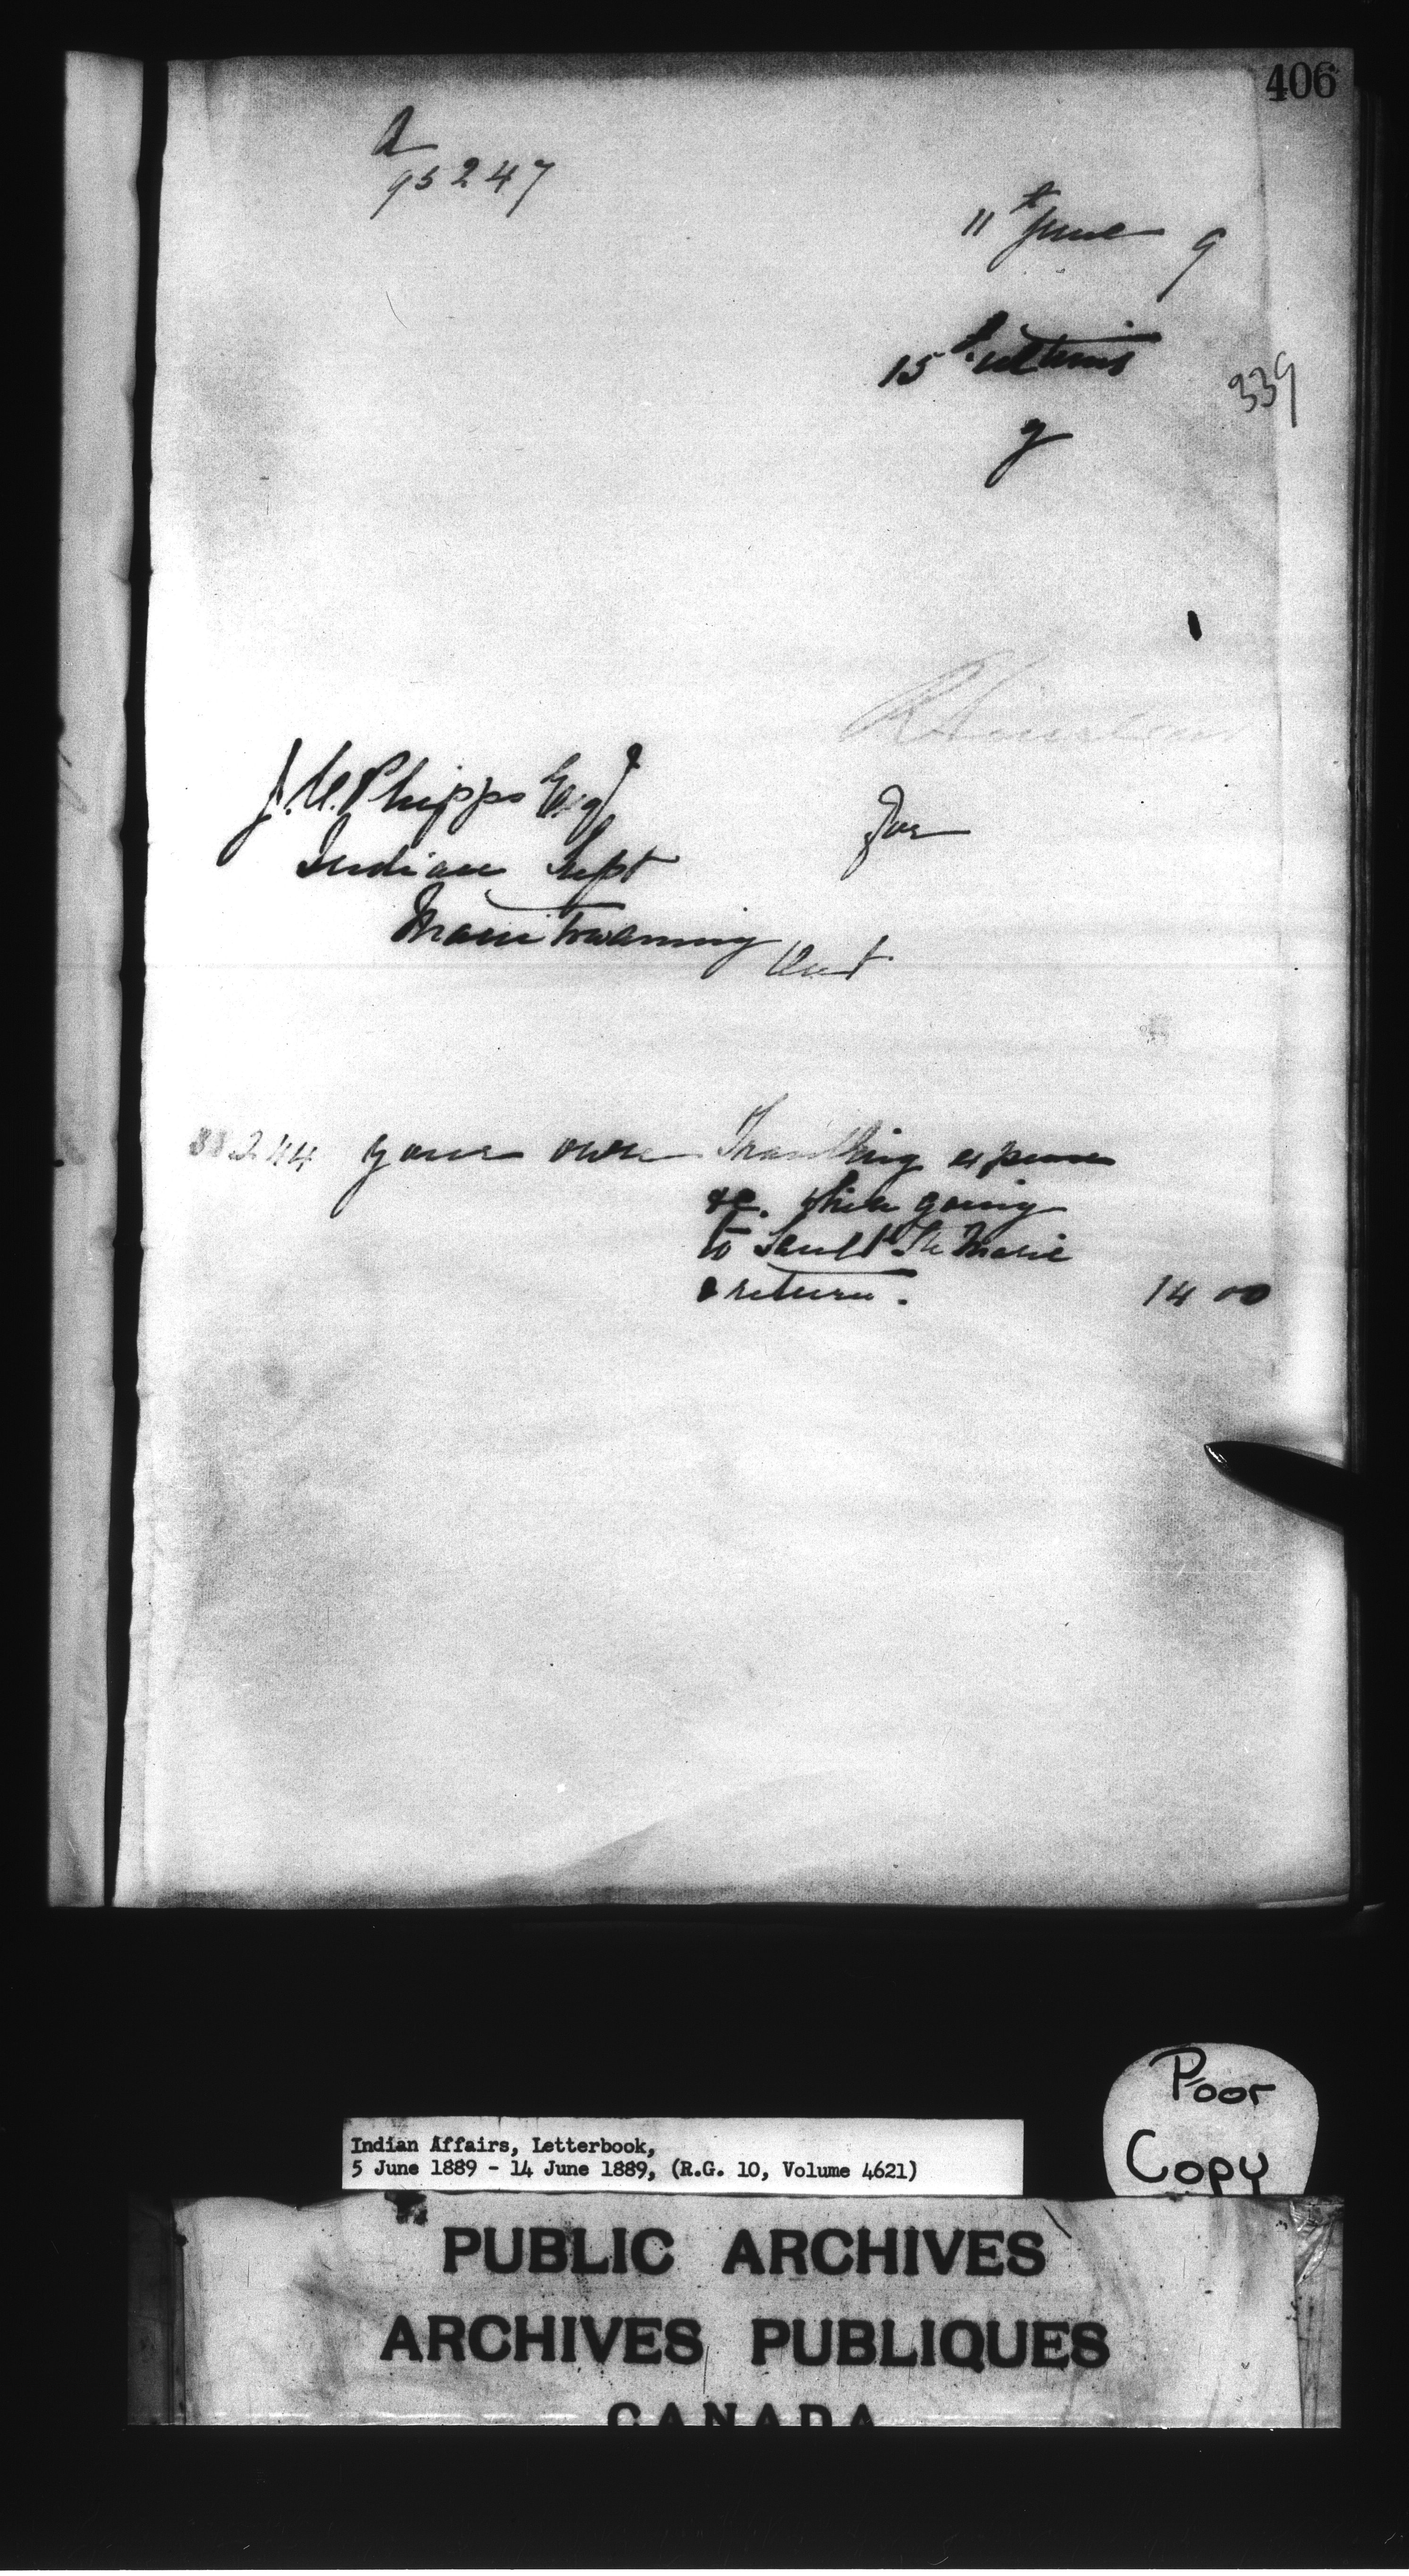 406
A
95247
11th June 9
15th ultimo
339
9
J. C. Phipps Esqr
for
Indian Supt
Manitowaning Ont
33244 your own Travelling expenses
&c. when going
to Sault Ste Marie
& return. 14 00
Poor
Copy
Indian Affairs, Letterbook,
5 June 1889 - 14 June 1889, (R.G. 10, Volume 4621)
PUBLIC ARCHIVES
ARCHIVES PUBLIQUES
CANADA